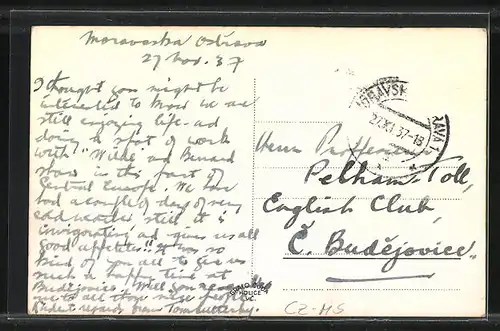 Moravaska Ostrava
27 Nov. 37
I thought you might be
interested to know we are
still enjoying life - ad
doing a spot of work
with "Wilkie ad Benard
show in this part of
Central Europe. We have
had a couple of days of very
cold weather still it is
invigorating ad gives us all
good appetites!! It was so
kind of you all to give us
such a happy time at
Budejovice. Will you
me to all those nice people
Kindest regards from
Herrn Professor
Pelham-Toll,
English Club,
Č. Budějovice.
MORAVSKÁ OSTRAVA 1
27.XI.37-18
CZ-MS